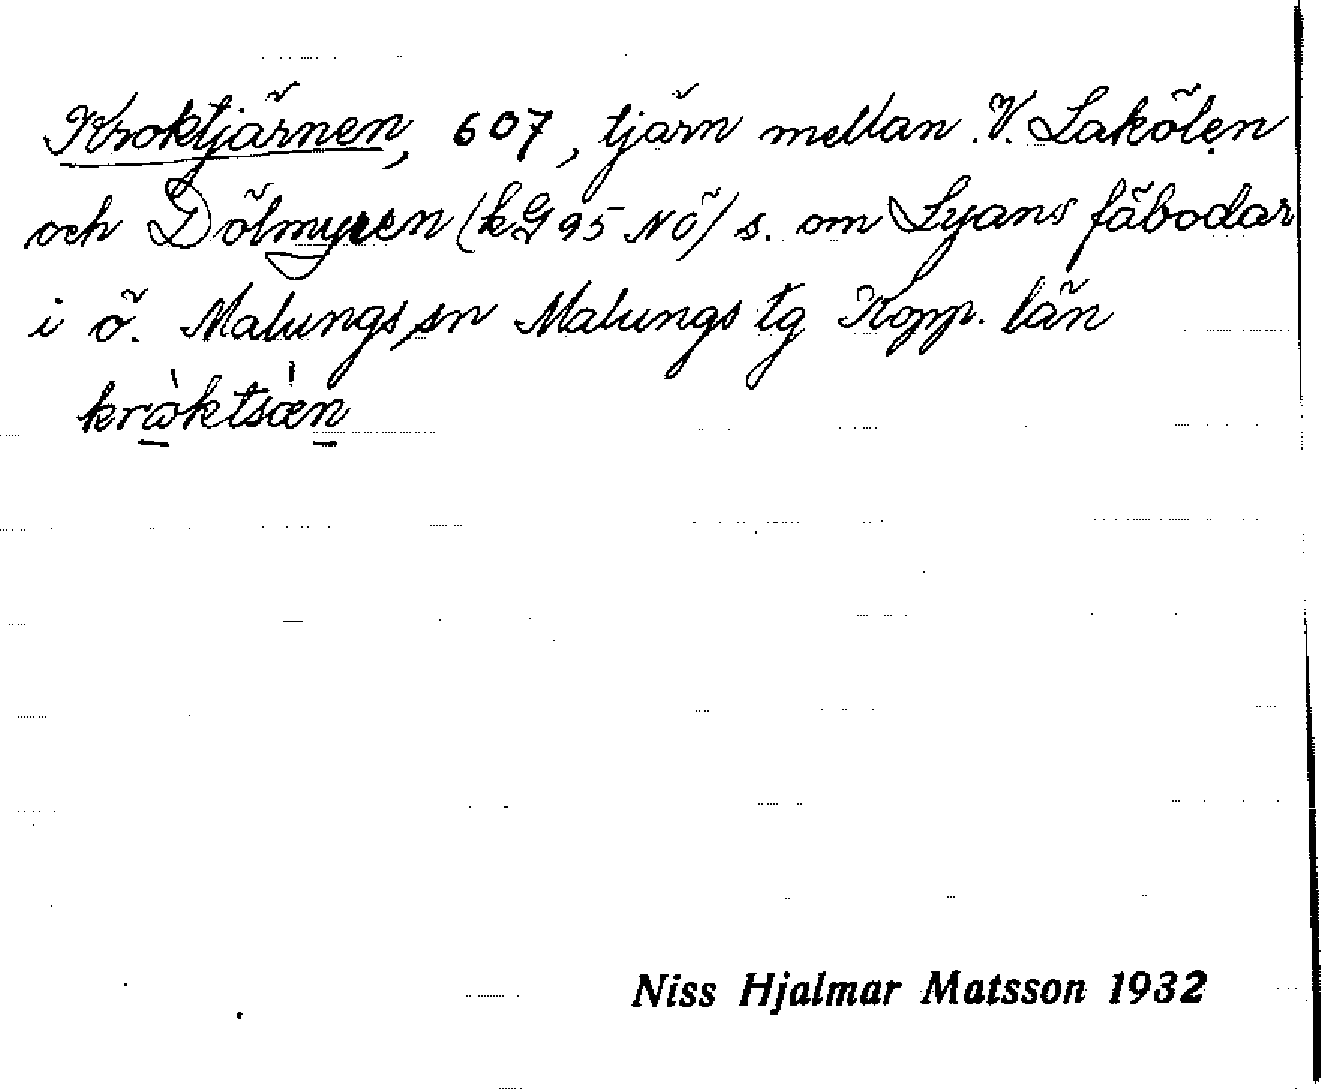 Kroktjärnen, 607, tjärn mellan V. Lakölen
och Dölmyren (kG 95 NÖ) s. om Lyans fäbodar
i ö. Malungs sn Malungs tg Kopp. län
kròktsæ̀n
Niss Hjalmar Matsson 1932